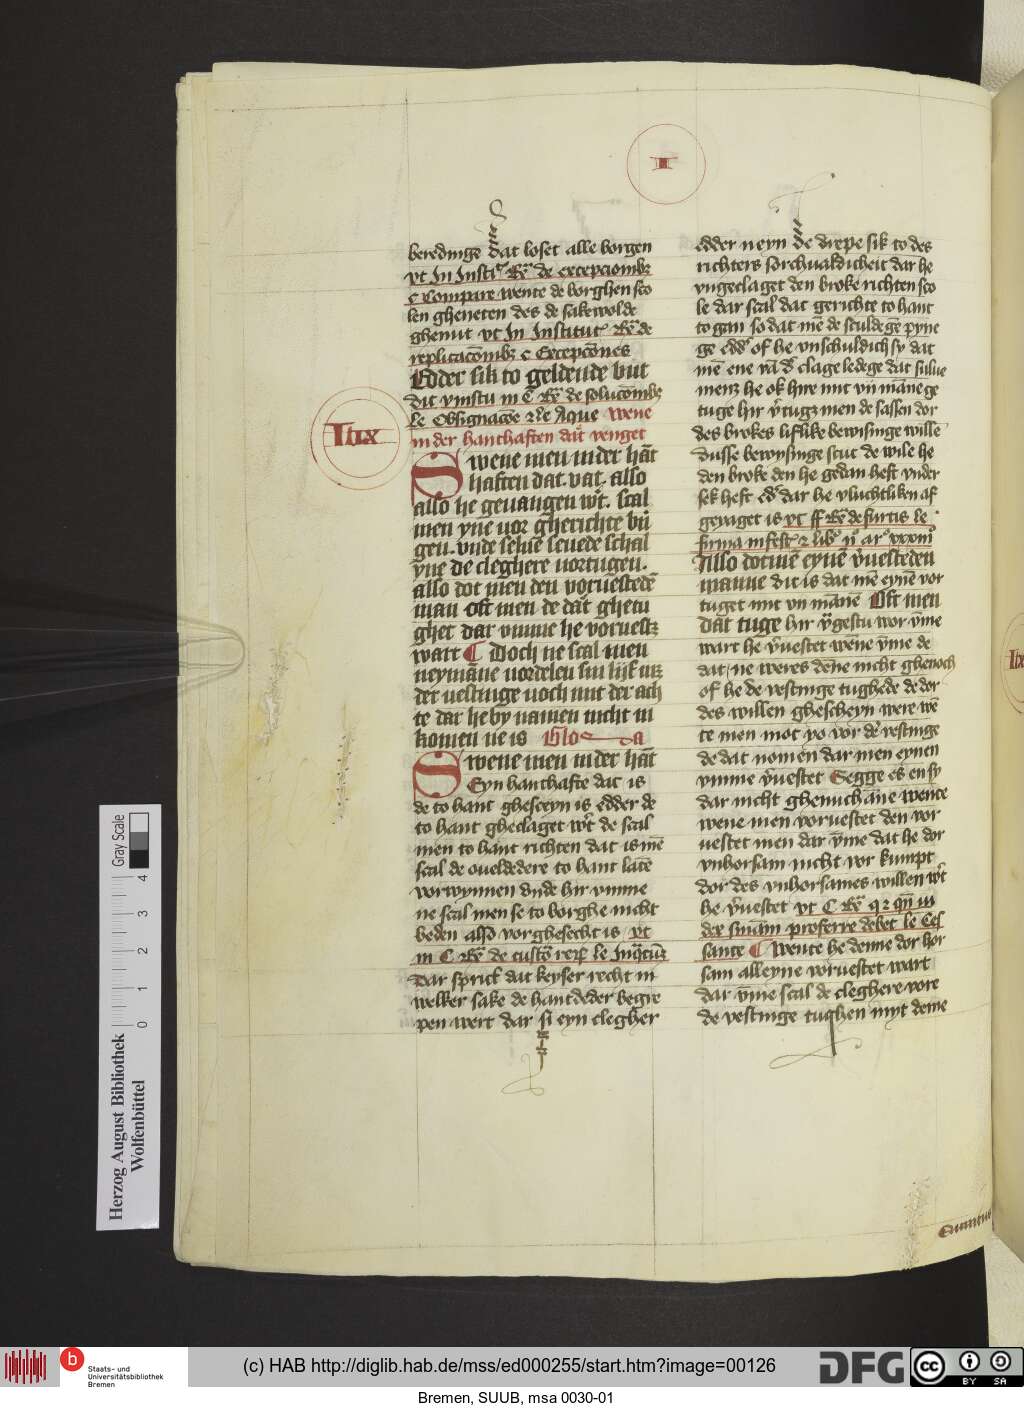 I
beredinge dat loset alle borgen
vt In Insti. Rͬ de excepcionibꝫ
c Compare wente de borghen sco
len gheneten des de sakewolde
ghenut vt In Institut Rͬ de
replicacōnibꝫ c Excepcōnes
Edder sik to geldende but
dit vinstu in C Rͬ de solucōnibꝫ
le Obsignacōe ⁊ le Aque Wene
in der hanthaften dat̄ venget
Lix
Swene men in der hāt
haften dat. vat. also
also he geuangen wͭt. scal
men yne vor gherichte bri
gen. vnde selue seuede schal
yne de cleghere vortugen.
also dot men den voruestedē
man oft men de dat ghetu
ghet dar vmme he voruestꝫ
wart Doch ne scal men
neymāne vordelen sin lijf mꝫ
der vestinge noch mit der ach
te dar he by namen nicht in
komen ne is Glosa
Swene men in der hāt
Eyn hanthafte dat is
de to hant ghesceyn is edder de
to hant gheclaget wͭt de scal
men to hant richten dat is mē
scal de oueldedere to hant latē
vorwynnen vnde hir vmme
ne scal men se to borghe nicht
beden also vorghesecht is vt
in C Rͬ de custō rerꝝ le
Dar sprickt dat keyser recht in
welker sake de hantdeder begre
pen wert dar si eyn clegher
edder neyn de drepe sik to des
richters sorchualdicheit dar he
vngeclaget den broke richten sco
le dar scal dat gerichte to hant
to gan so dat mē de sculdegē pyne
ge edd' of he vnschuldich sy dat
mē ene vā d' clage ledege dat sulue
menꝫ he ok hire mit vn māne ge
tuge hir v'tugꝫ men de sassen dor
des brokes liflike bewisinge wille
dusse bewysinge scut de wile he
den broke den he gedan heft vnder
sek heft ed' dar he vluchtliken af
geiaget is vt ff Rͬ de furtis le
Also dotmē eynē v'uesteden
manne dit is dat mē eynē vor
tuget mit vn māne Oft men
dat tuge hir v'gestu wor vme
wart he v'uestet wēne vme de
dat ne weres dēne nicht ghenoch
of he de vestinge tughede de dor
des willen ghescheyn were wē
te men mot yo vor de vestinge
de dat nomen dar men eynen
vmme v'uestet Segge es en sy
dar nicht ghenuch ane Wente
wene men voruestet den vor
uestet men dar vme dat he dor
vnhorsam nicht vor kumpt
dor des vnhorsames willen wͭt
he v'uestet vt C Rͬ
preferre debet le Ces
sante Wente he denne dor hor
sam alleyne voruestet wart
dar vme scal de cleghere vore
de vestinge tughen myt deme
Lix
Gray Scale
4
3
2
1
0
Herzog August Bibliothek
Wolfenbüttel
b
Staats- und
Universitätsbibliothek
Bremen
(c) HAB http://diglib.hab.de/mss/ed000255/start.htm?image=00126
DFG
cc
BY SA
Bremen, SUUB, msa 0030-01